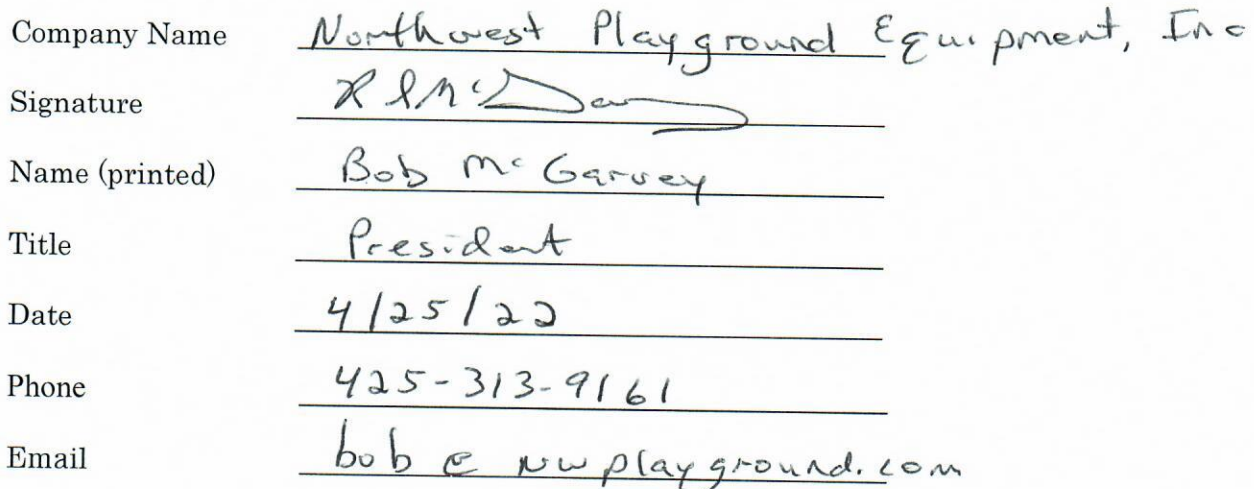 Company Name Northwest Playground Equipment, Inc
Signature
Name (printed) Bob McGarvey
Title President
Date 4/25/22
Phone 425-313-9161
Email bob@nwplayground.com